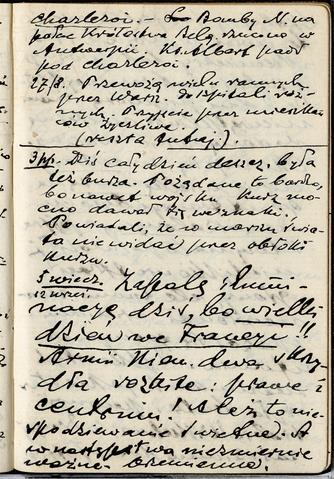 Charleroi. – Bomby N. na
pałac Królestwa Belg. rzucono w
Antwerpii. Ks. Albert padł
pod Charleroi.
27/8. Przewożą wielu rannych
przez Warsz. do szpitali
Przyjęcie przez mieszkań-
ców życzliwe.
(reszta tutaj).
3 pp. Dziś cały dzień deszcz. Była
też burza. Pożądane to bardzo,
bo nawet wojsku kurz mo-
cno dawał się we znaki.
Powiadali, że w marszu świa-
ta nie widać przez obłoki
kurzu.
5 wiecz. Zapalę
12 wrześ. nację dziś, bo wielki
dzień we Francyi!!
Armii Niem. dwa skrzy-
dła rozbite: prawe i
centrum! Ależ to nie-
spodziewane i świetne. A
w następstwa niezmiernie
ważne – brzemienne.